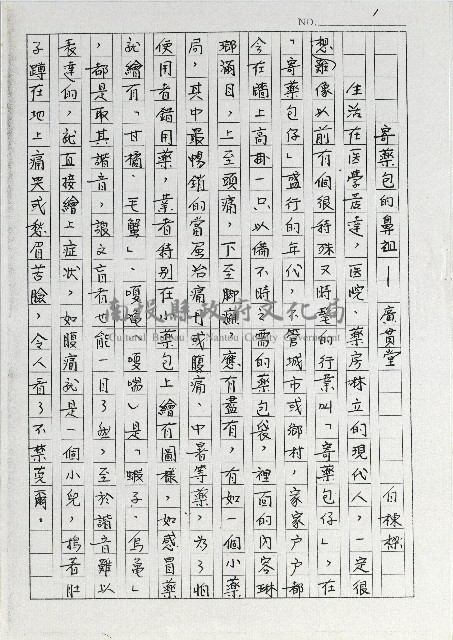 1
NO.
寄藥包的鼻祖—廣貫堂
白棟樑
生活在医學昌達，医院、藥房林立的現代人，一定很
想難像以前有個很特殊又時髦的行業叫「寄藥包仔」，在
「寄藥包仔」盛行的年代，管城市或鄉村，家家户户都
今在牆上高掛一只以備不時之需的藥包袋，裡面的內容琳
瑯滿目，上至頭痛，下至脚痛應有盡有，有如一個小藥
局，其中最暢銷的當屬治痛可或腹痛、中暑等藥，为了怕
使用者錯用藥，業者特别在小藥包上繪有圖樣，如感冒藥
就繪有「甘橘、毛蟹」、嗄龜（嗄喘）是「蝦子、烏龜」
，都是取其諧音，讓文盲者也能一目了然，至於諧音難以
表達的，就直接繪上症状，如腹痛就是一個小兒，摀著肚
子蹲在地上痛哭或愁眉苦臉，令人看了不禁莞爾。
南投縣政府文化局
Cultural Bureau of Nantou County Government